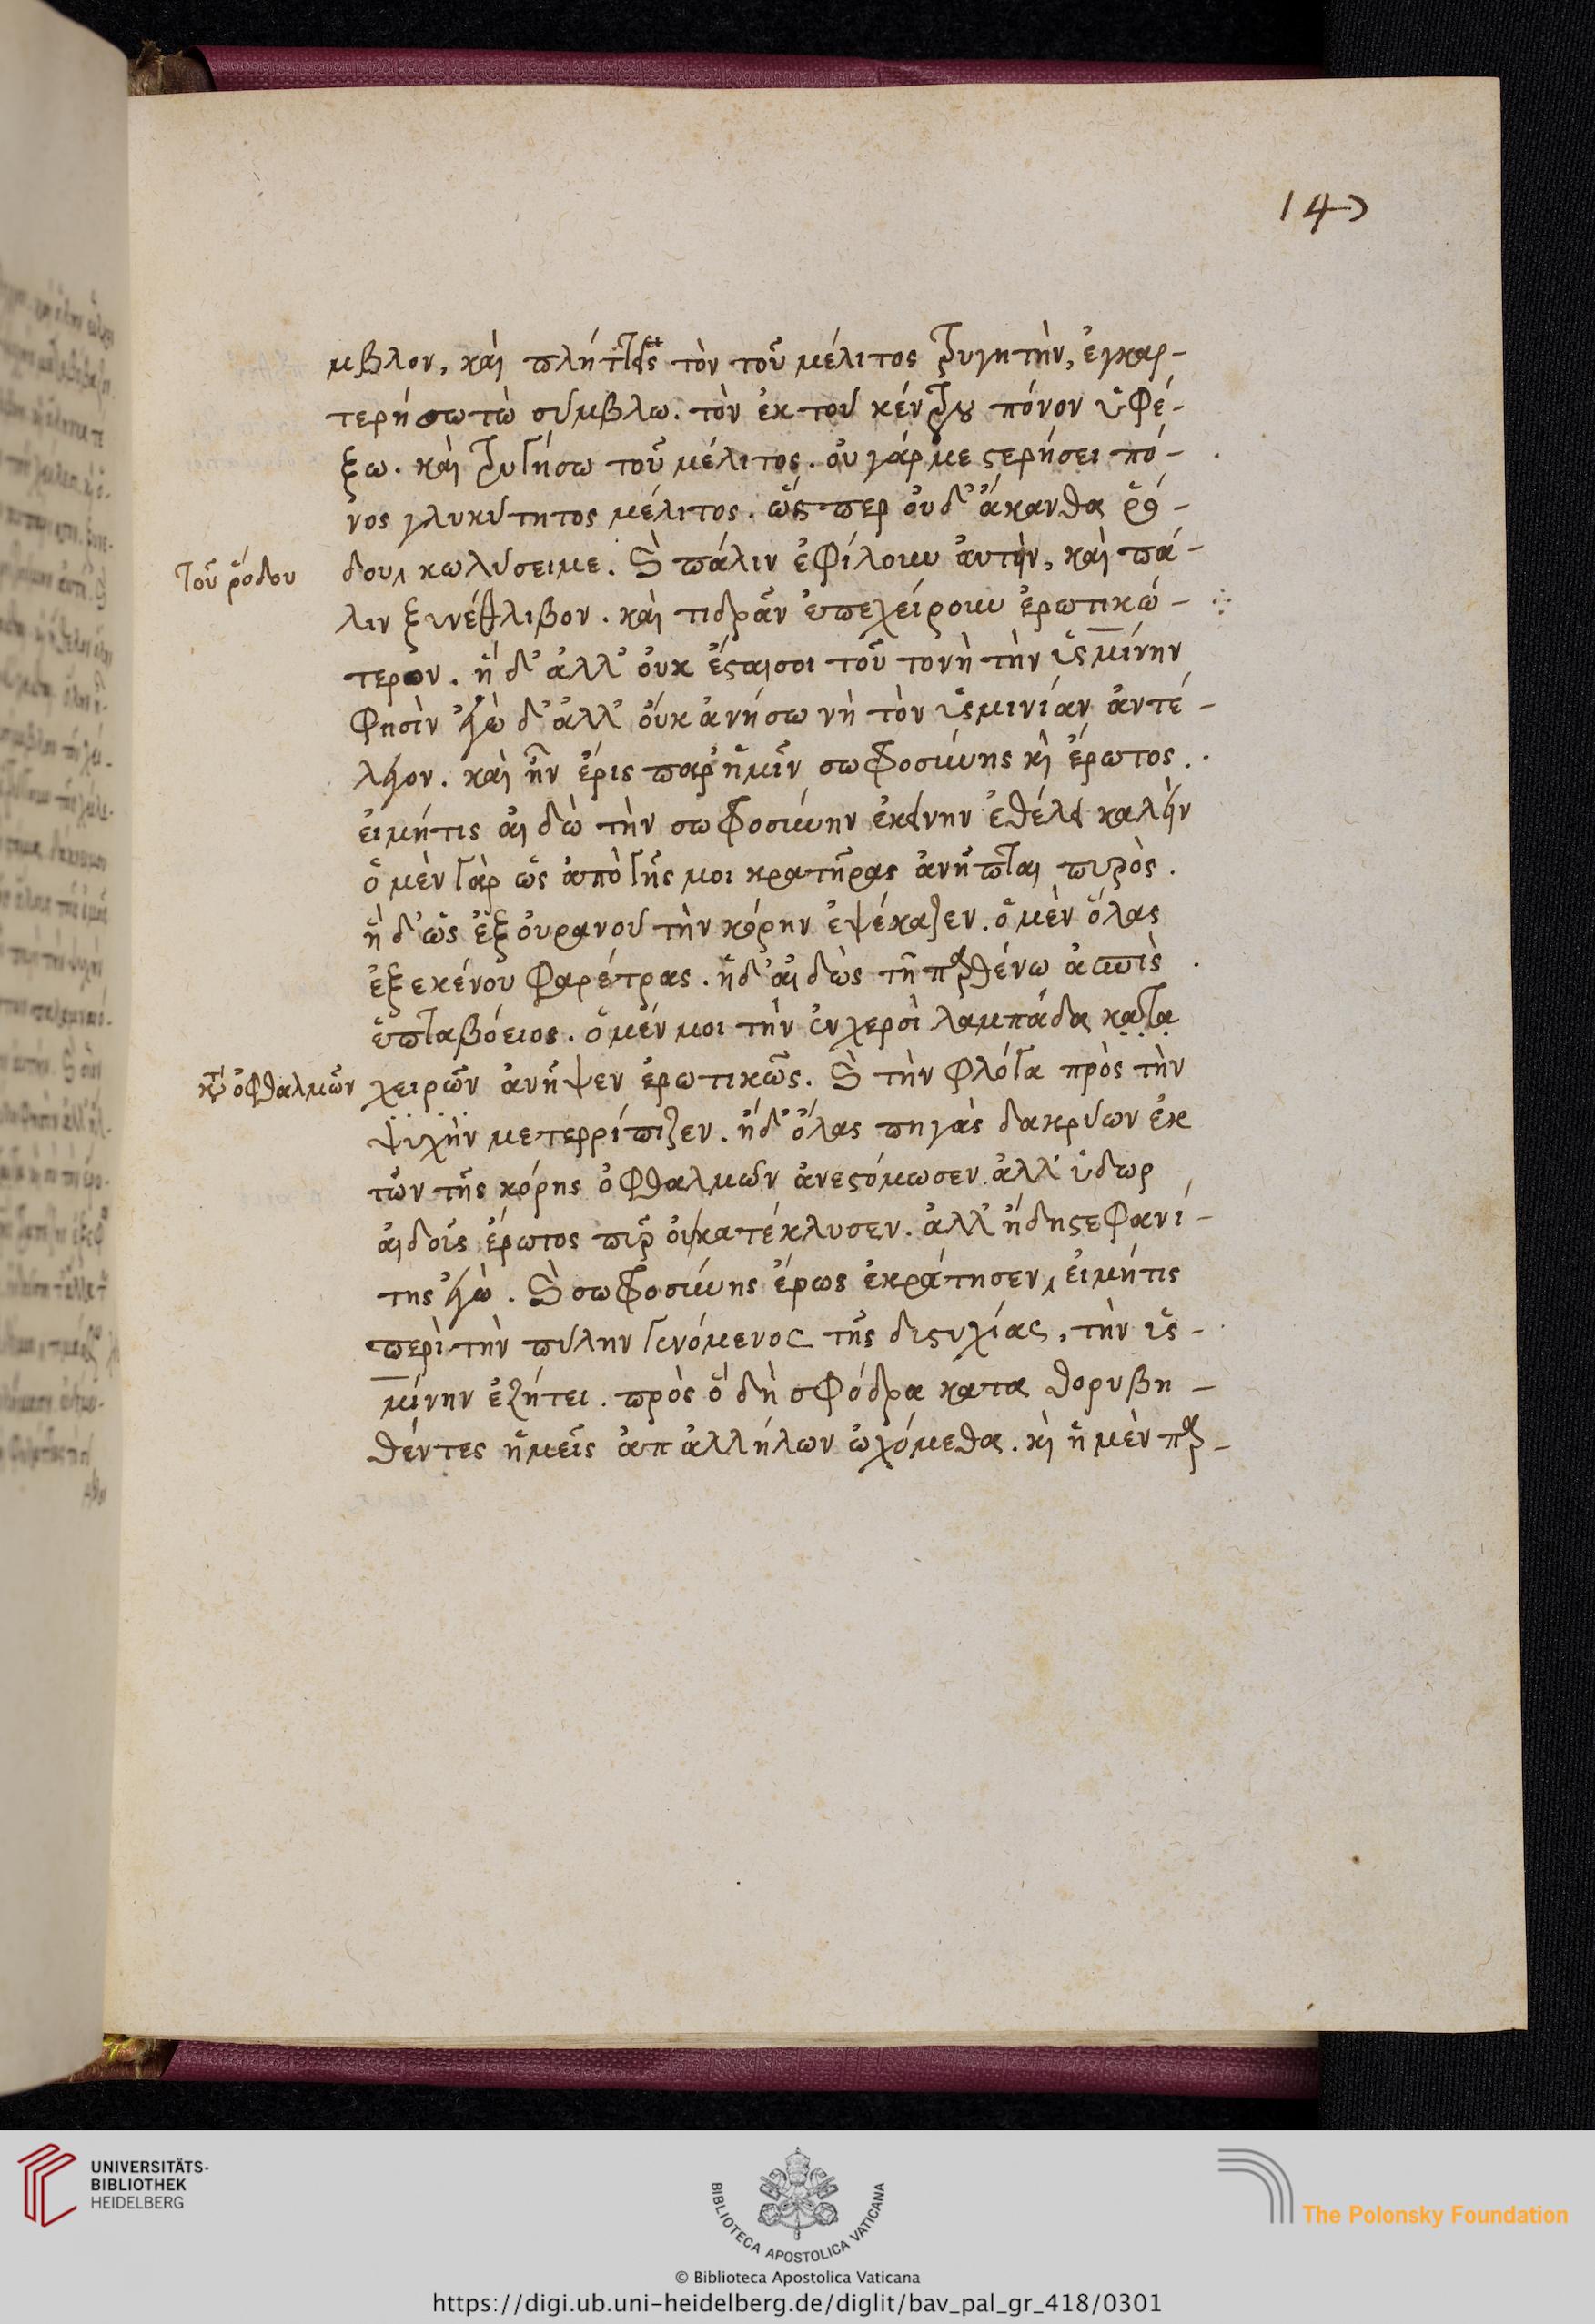 147
μβλον, καὶ πλήττεις τὸν τοῦ μέλιτος τρυγητὴν, ἐγκαρ-
τερήσω τῶ σύμβλω. τὸν ἐκ τοῦ κέντρου πόνον ὑφέ-
ξω. καὶ τρυγήσω τοῦ μέλιτος. οὐ γάρ με στερήσει πό-
νος γλυκύτητος μέλιτος. ὥσπερ οὐδ᾽ ἄκανθα ῥό-
τοῦ ῥόδου
δου, κωλύσειμε. καὶ πάλιν ἐφίλουν ἀυτὴν, καὶ πά-
λιν ξυνέθλιβον. καὶ τι δρᾶν ἐπεχείρουν ἐρωτικώ-
τερον. ἡ δ᾽ ἀλλ᾽ οὐκ ἔσται σοι τοῦτο νὴ τὴν ὑσμίνην
φησὶν ἐγὼ δ᾽ ἀλλ᾽ οὐκ ἀνήσω νὴ τὸν ὑσμινίαν ἀντέ-
λεγον. καὶ ἦν ἔρις παρ᾽ ἡμῖν σωφροσύνης κὶ ἔρωτος.
εἰ μήτις αἰδὼ τὴν σωφροσύνην ἐκείνην ἐθέλει καλεῖν
ὁ μὲν γὰρ ὡς ἀπὸ γῆς μοι κρατῆρας ἀνῆπται πυρὸς.
ἡ δ᾽ ὡς ἐξ οὐρανοῦ τὴν κόρην ἐψέκαζεν. ὁ μὲν ὅλας
ἐξεκένου φαρέτρας. ἡ δ᾽ αἰδὼς τῆ παρθένω ἀσπὶς
ἑπταβόειος. ὁ μέν μοι τὴν ἐν χερσὶ λαμπάδα κατα
κτ ὀφθαλμῶν
χειρῶν ἀνῆψεν ἐρωτικῶς. καὶ τὴν φλόγα πρὸς τὴν
ψυχὴν μετερρίπιζεν. ἡ δ᾽ ὅλας πηγὰς δακρύων ἐκ
τῶν τῆς κόρης ὀφθαλμῶν ἀνεστόμωσεν ἀλλ᾽ ὕδωρ
αἰδοῦς ἔρωτος πῦρ οὐ κατέκλυσεν. ἀλλ᾽ ἤδη στεφανί-
της ἐγὼ. καὶ σωφροσύνης ἔρως ἐκράτησεν, εἰ μήτις
περὶ τὴν πύλην γενόμενος τῆς δυστυχίας, τὴν ὑσ-
μίνην ἐζήτει. πρὸς ὃ δὴ σφόδρα κατα θορυβη-
θέντες ἡμεῖς ἀπ ἀλλήλων ὠχόμεθα. κὶ ἡ μὲν παρ-
UNIVERSITÄTS-
BIBLIOTHEK
HEIDELBERG
BIBLIOTECA APOSTOLICA VATICANA
The Polonsky Foundation
© Biblioteca Apostolica Vaticana
https://digi.ub.uni-heidelberg.de/diglit/bav_pal_gr_418/0301